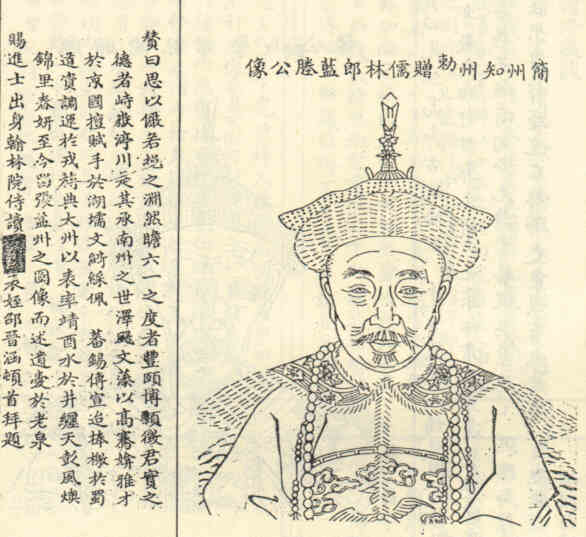 簡州知州勅贈儒林郎藍塍公像
贊曰思以儼若挹之淵然瞻六一之度者豐頤博顙徵君實之
德者峙嶽渟川是其承南州之世澤颺文藻以高騫媲雅才
於京國擅賦手於湖壖文綵佩 蕃錫傳宣迨捧檄於蜀
道資調運於戎旃典大州以表率靖酉水於井纏天彭風燠
錦里春妍至今留張益州之圖像而述遺愛於老泉
賜進士出身翰林院侍讀姪邵晉涵頓首拜題